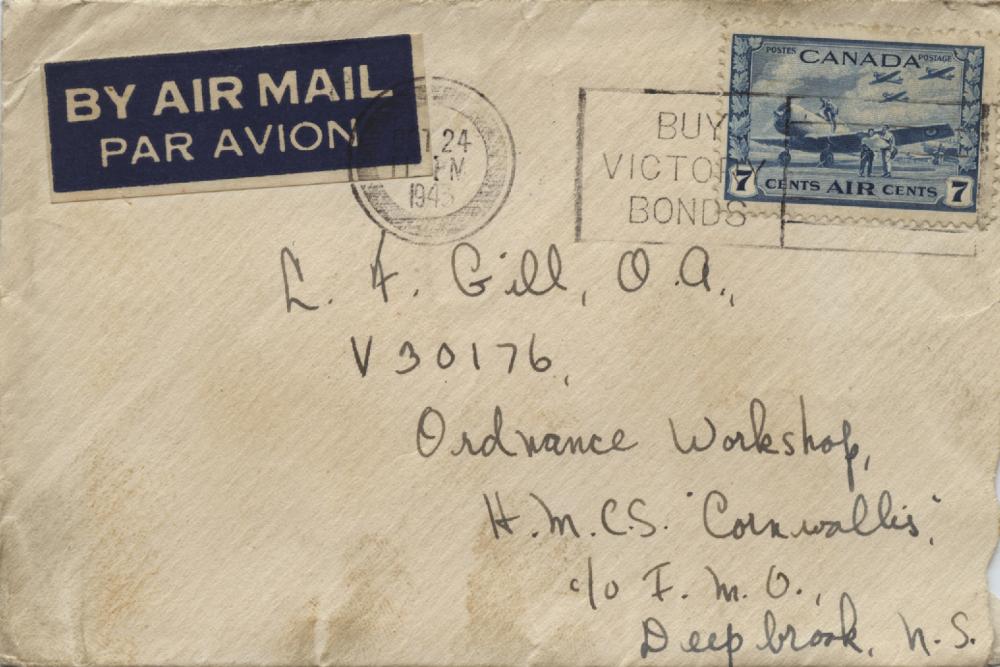 BY AIR MAIL
PAR AVION
OCT 24
PM
POSTES CANADA POSTAGE
7 CENTS AIR CENTS 7
BUY
VICTORY
BONDS
L. F. Gill, O.A.,
V 30176,
Ordnance Workshop,
H.M.C.S. "Cornwallis",
c/o F.M.O.,
Deepbrook, N.S.